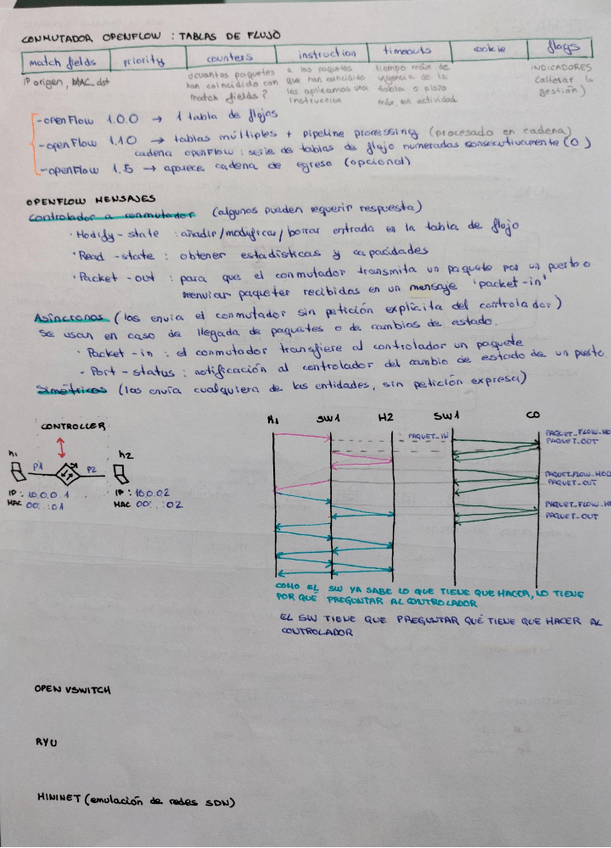 CONMUTADOR OPENFLOW : TABLAS DE FLUJO
match fields priority counters instruction timeouts cookie flags
IP origen, MAC dst
¿cuantos paquetes han coincidido con match fields?
a los paquetes que han coincidido les aplicamos una instrucción
tiempo máx de vigencia de la tabla o plazo máx. sin actividad
INDICADORES (alterar la gestión)
- openFlow 1.0.0 → 1 tabla de flujos
- openFlow 1.1.0 → tablas múltiples + pipeline processing (procesado en cadena)
cadena openFlow : serie de tablas de flujo numeradas consecutivamente (0 )
- openFlow 1.5 → aparece cadena de egreso (opcional)
OPENFLOW MENSAJES
Controlador a conmutador (algunos pueden requerir respuesta)
· Modify-state : añadir/modificar/borrar entrada en la tabla de flujo
· Read-state : obtener estadísticas y capacidades
· Packet-out : para que el conmutador transmita un paquete por un puerto o
reenviar paquetes recibidos en un mensaje 'packet-in'
Asíncronos (los envía el conmutador sin petición explícita del controlador)
Se usan en caso de llegada de paquetes o de cambios de estado.
· Packet-in : el conmutador transfiere al controlador un paquete
· Port-status : notificación al controlador del cambio de estado de un puerto.
Simétricos (los envía cualquiera de las entidades, sin petición expresa)
CONTROLLER
h1 P1 P2 h2
IP : 10.0.0.1 IP : 10.0.0.2
MAC 00:...:01 MAC 00:...:02
H1 SW1 H2 SW1 C0
PAQUET_IN
PAQUET_FLOW_MOD
PAQUET_OUT
PAQUET_FLOW_MOD
PAQUET_OUT
PAQUET_FLOW_MOD
PAQUET_OUT
COMO EL SW YA SABE LO QUE TIENE QUE HACER, LO TIENE
POR QUÉ PREGUNTAR AL CONTROLADOR
EL SW TIENE QUE PREGUNTAR QUÉ TIENE QUE HACER AL
CONTROLADOR
OPEN VSWITCH
RYU
MININET (emulación de redes SDN)